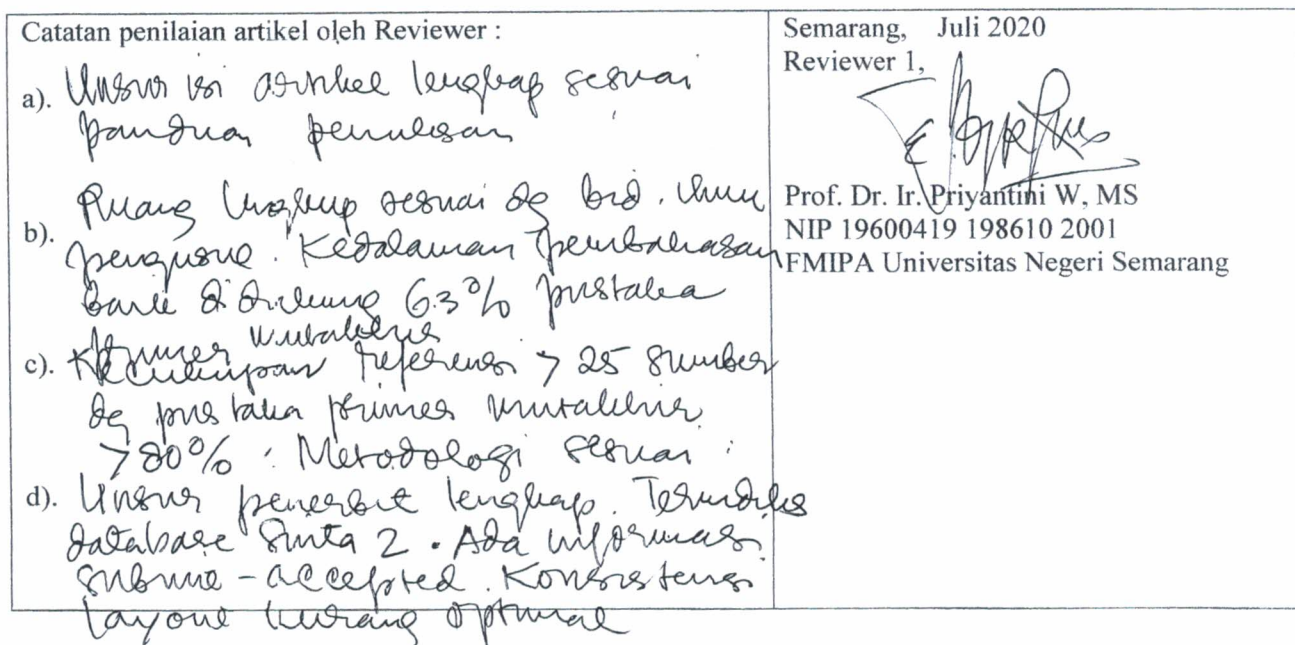 Catatan penilaian artikel oleh Reviewer :
a). Unsur isi artikel lengkap sesuai
panduan penulisan
b). Ruang lingkup sesuai dg bid. ilmu
pengusul. Kedalaman pembahasan
baik didukung 63% pustaka
primer mutakhir
c). Kecukupan referensi > 25 sumber
dg pustaka primer mutakhir
>80%. Metodologi sesuai.
d). Unsur penerbit lengkap. Terindeks
database Sinta 2. Ada informasi
submit - accepted. Konsistensi
layout kurang optimal
Semarang, Juli 2020
Reviewer 1,
Prof. Dr. Ir. Priyantini W, MS
NIP 19600419 198610 2001
FMIPA Universitas Negeri Semarang